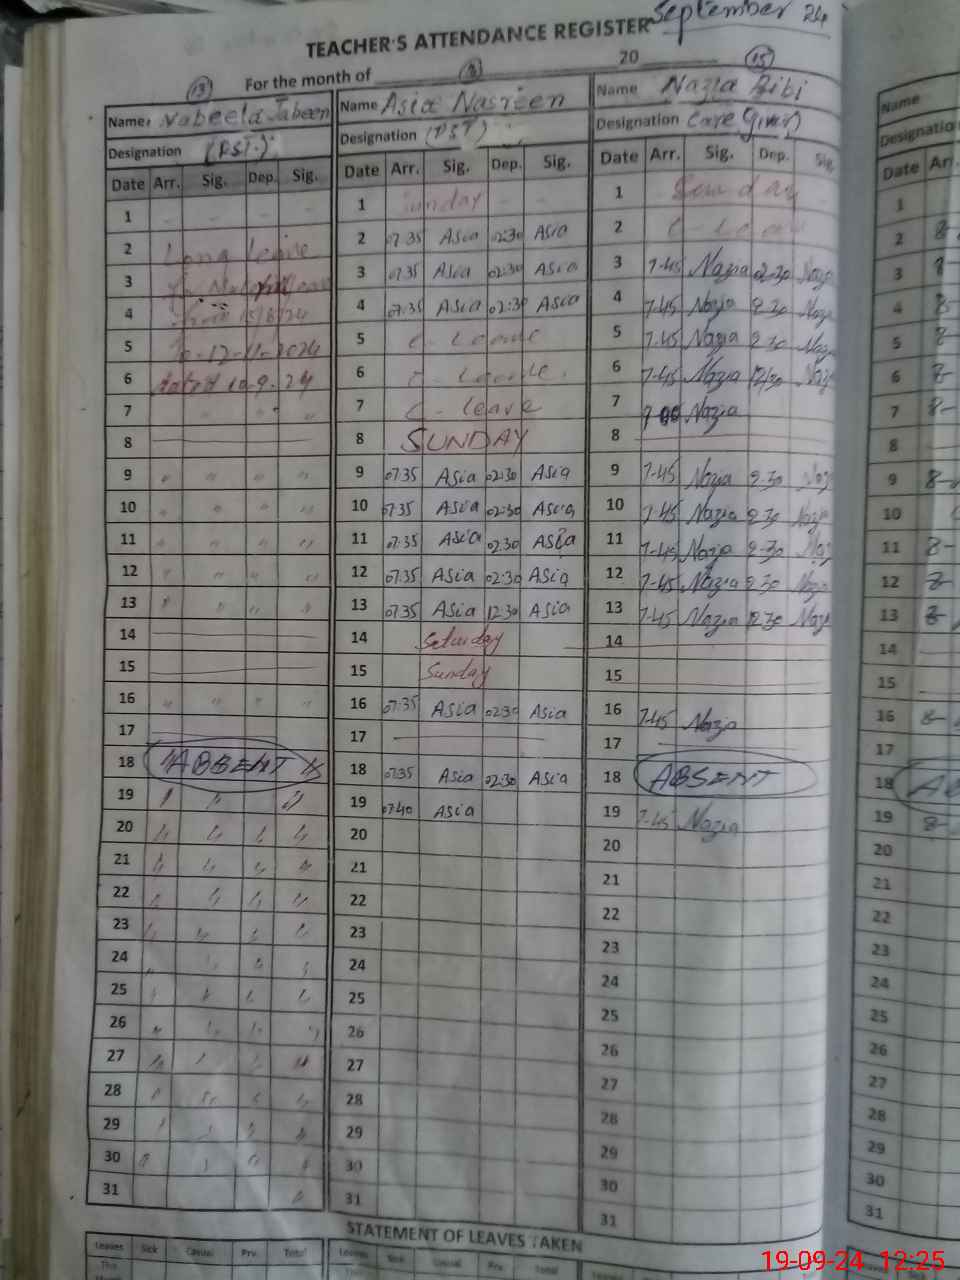 September 24
TEACHER'S ATTENDANCE REGISTER
For the month of 20
13
15
Name: Nabeela Jabeen
Designation (PST.)
Date Arr. Sig. Dep. Sig.
1
2 Long Leave
3
4 From 15/8/24
5 To 12-11-2024
6 10-9-24
7
8
9 " " " "
10 " " " "
11 " " " "
12 " " " "
13 " " " "
14
15
16 " " " "
17
18 "ABSENT"
19
20
21
22
23
24
25
26
27
28
29
30
31
Name Asia Nasreen
Designation (PST)
Date Arr. Sig. Dep. Sig.
1 Sunday
2 07:35 Asia 02:30 Asia
3 07:35 Asia 02:30 Asia
4 07:35 Asia 02:30 Asia
5 C - Leave
6 C - Leave.
7 C - leave
8 SUNDAY
9 07:35 Asia 02:30 Asia
10 07:35 Asia 02:30 Asia
11 07:35 Asia 02:30 Asia
12 07:35 Asia 02:30 Asia
13 07:35 Asia 12:30 Asia
14 Saturday
15 Sunday
16 07:35 Asia 02:30 Asia
17
18 07:35 Asia 02:30 Asia
19 07:40 Asia
20
21
22
23
24
25
26
27
28
29
30
31
Name Nazia Bibi
Designation Care Giver
Date Arr. Sig. Dep. Sig.
1 Sunday
2 C - Leave
3 7-45 Nazia 02-30 Nazi
4 7-45 Nazia 2-30 Nazi
5 7-45 Nazia 2 30 Nazi
6 7-45 Nazia 12/30 Nazi
7 Nazia
8
9 7-45 Nazia 2-30 Naz
10 7-45 Nazia 2 30 Nazi
11 7-45 Nazia 2-30 Naz
12 7-45 Nazia 2-30 Nazi
13 7-45 Nazia 12 30 Nazi
14
15
16 7-45 Nazia
17
18 ABSENT
19 7-45 Nazia
20
21
22
23
24
25
26
27
28
29
30
31
Name
Designatio
Date Ar
1
2 8-
3 8-
4 8
5 8
6 8-
7 8-
8
9 8-
10
11 8-
12 8-
13 8-
14
15
16 8-
17
18 AB
19 8-
20
21
22
23
24
25
26
27
28
29
30
31
STATEMENT OF LEAVES TAKEN
Leaves Sick Casual Prv. Total
This
Leaves Sick Casual Prv. Total
This
Leaves
19-09-24 12:25